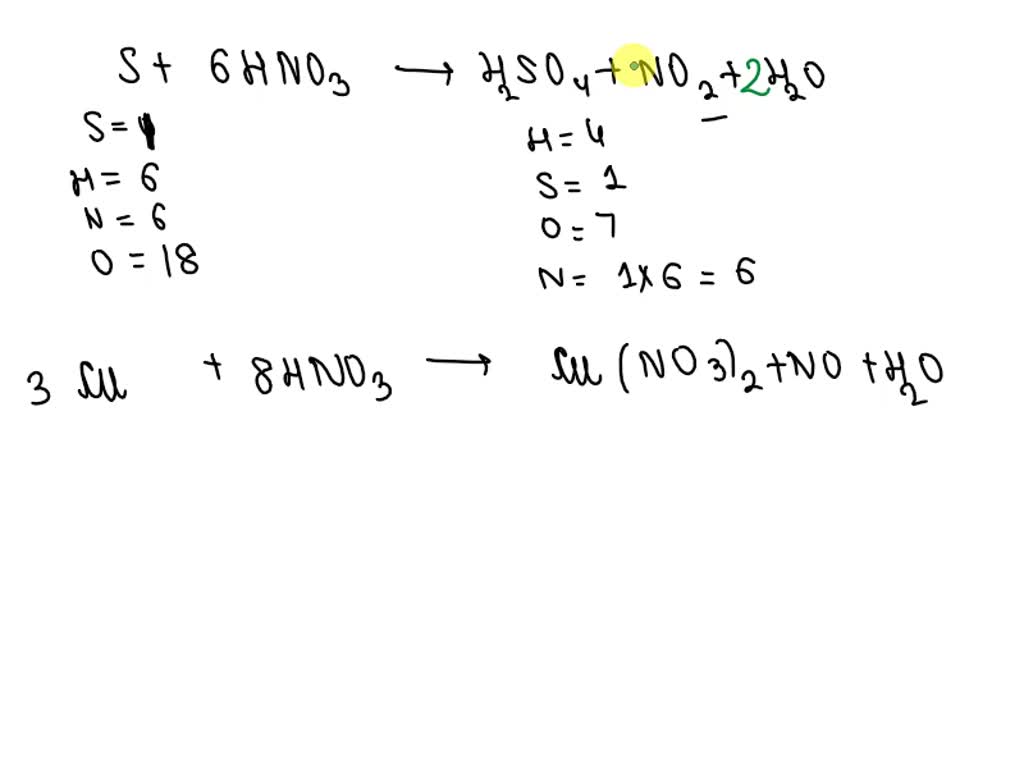 S + 6HNO₃ → H₂SO₄ + NO₂ + 2H₂O
S = 1
H = 6
N = 6
O = 18
H = 4
S = 1
O = 7
N = 1 × 6 = 6
3 Cu + 8HNO₃ → Cu(NO3)₂ + NO + H₂O